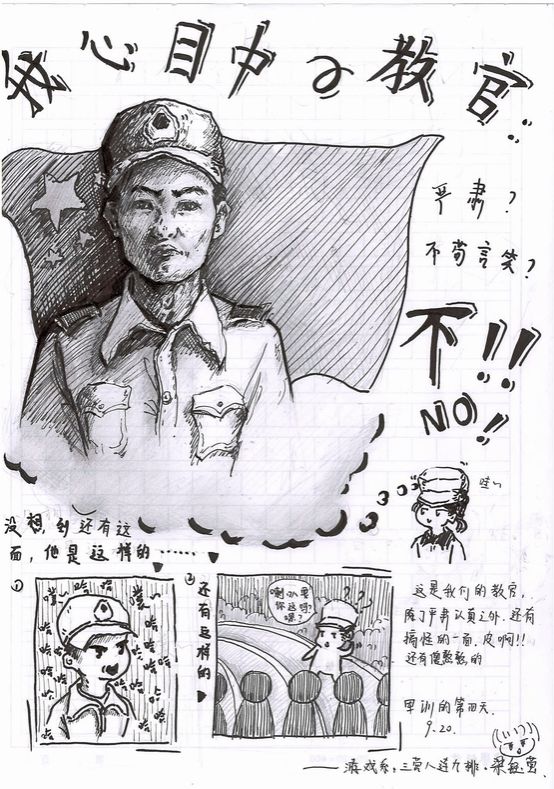 我心目中の教官
严肃？
不苟言笑？
不!!
NO!!
哇~
没想到还有这
面，他是这样的……
①
噗 哈 哈 哈 噗
哈 哈 哈
哈 哈 哈
②
还有这样的
喇叭里
你这吗?
嘿?
? ?
这是我们的教官，
除了严肃认真之外，还有
搞怪的一面，皮啊!!
还有傻憨憨的
早训的第四天
9.20.
——游戏系：三营八连九排·梁